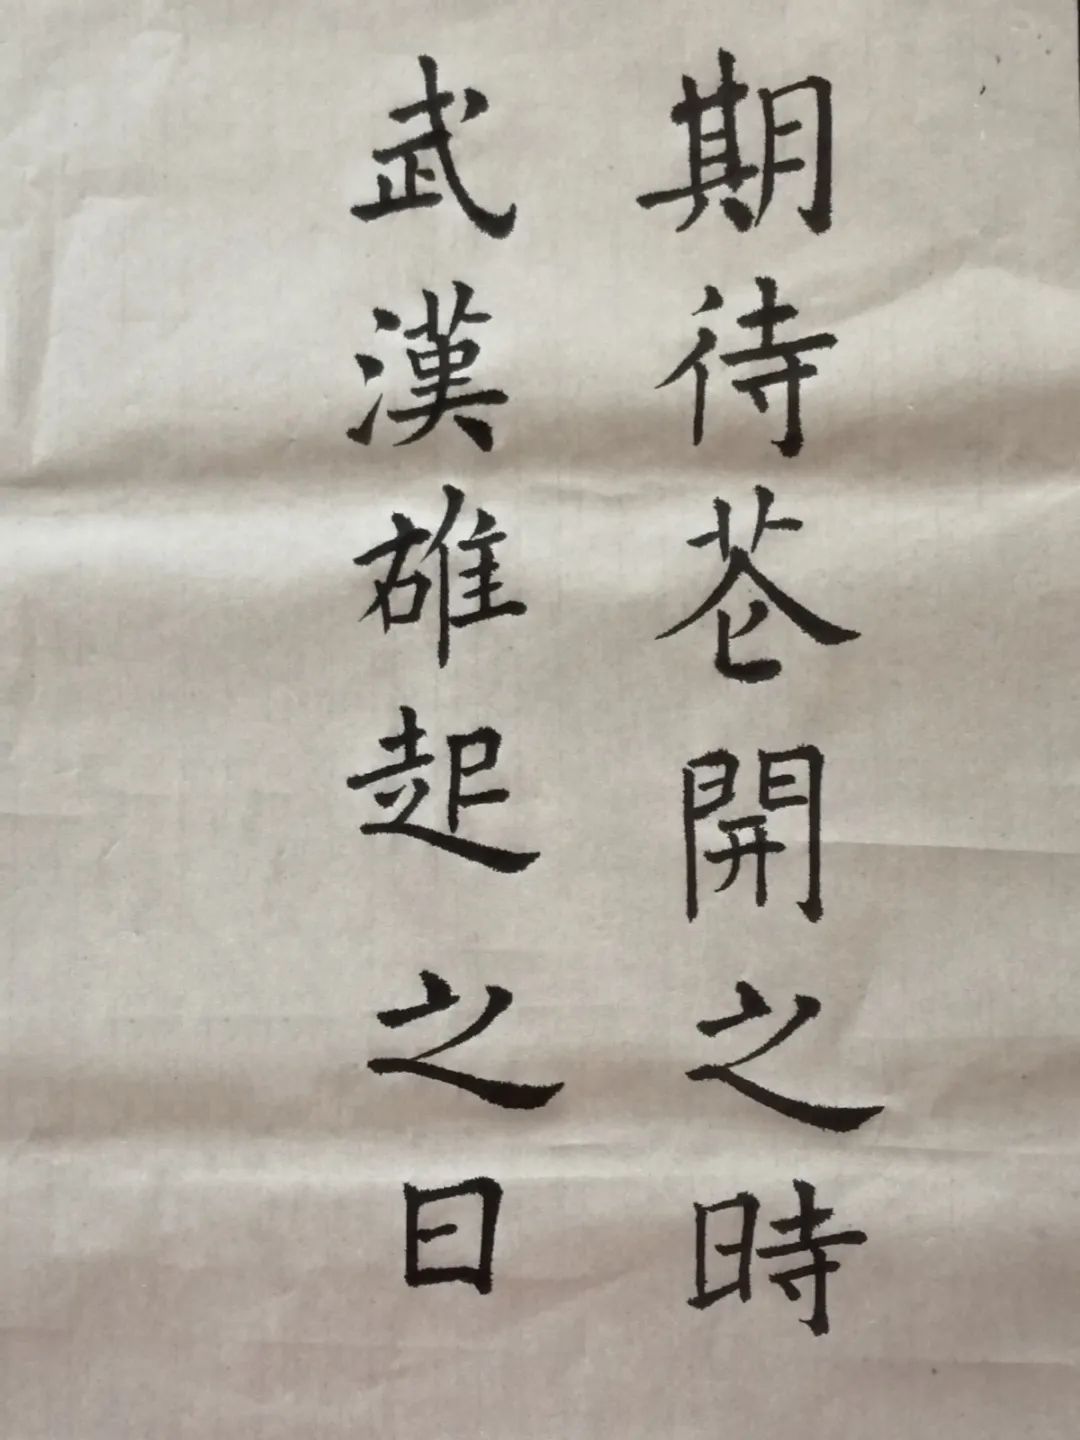 期待芲開之時
武漢雄起之日